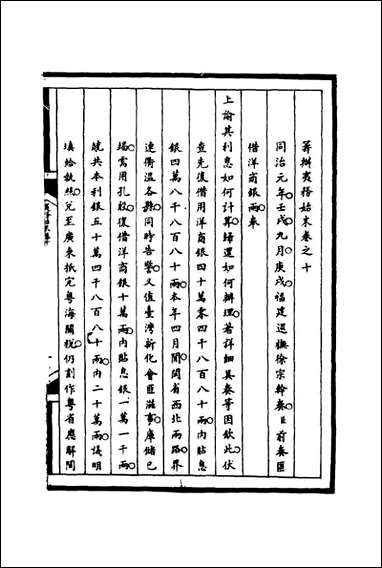 籌辦夷務始末卷之十
同治元年壬戌九月庚戌福建巡撫徐宗幹奏臣前奏匯
借洋商銀兩奉
上諭其利息如何計算歸還如何辦理著詳細具奏等因欽此伏
查先後借用洋商銀四十萬零四千八百八十兩內貼息
銀四萬八千八百八十兩本年四月間閩省西北兩路界
連衢溫各縣同時告警又值臺灣新化會匪滋事庫儲已
竭需用孔殷復借洋商銀十萬兩內貼息銀一萬一千兩
統共本利銀五十萬四千八百八十兩內二十萬兩議明
填給執照兌至廣東抵完粵海關稅仍劃作粵省應解閩